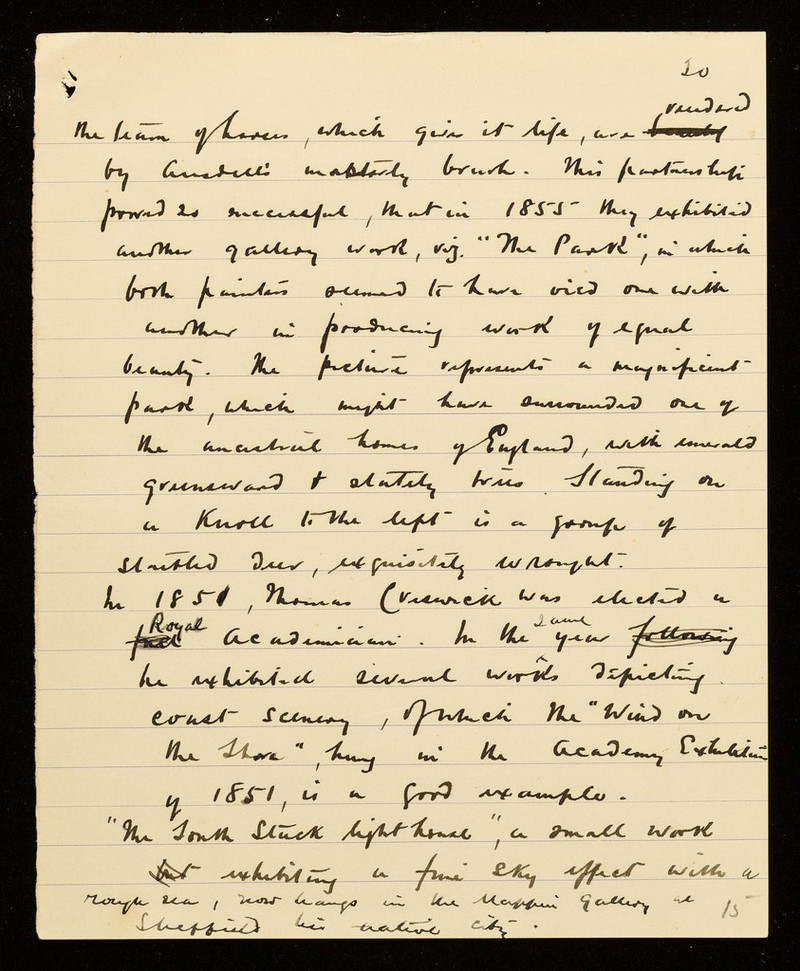 20
rendered
the team of horses, which give it life, are beauty
by Ansdell's masterly brush. This partnership
proved so successful, that in 1855 they exhibited
another gallery work, viz. "The Park", in which
both painters seemed to have vied one with
another in producing work of equal
beauty. The picture represents a magnificent
park, which might have surrounded one of
the ancestral homes of England, with emerald
greensward & stately trees. Standing on
a Knoll to the left is a group of
startled deer, exquisitely wrought.
In 1851, Thomas Creswick was elected a
Royal same
full Academician. In the year following
he exhibited several works depicting
coast scenery, of which the "Wind on
the Shore", hung in the Academy Exhibition
of 1851, is a good example.
"The South Stack lighthouse", a small work
but exhibiting a fine sky effect with a
rough sea, now hangs in the Mappin Gallery at
Sheffield his native city.
15